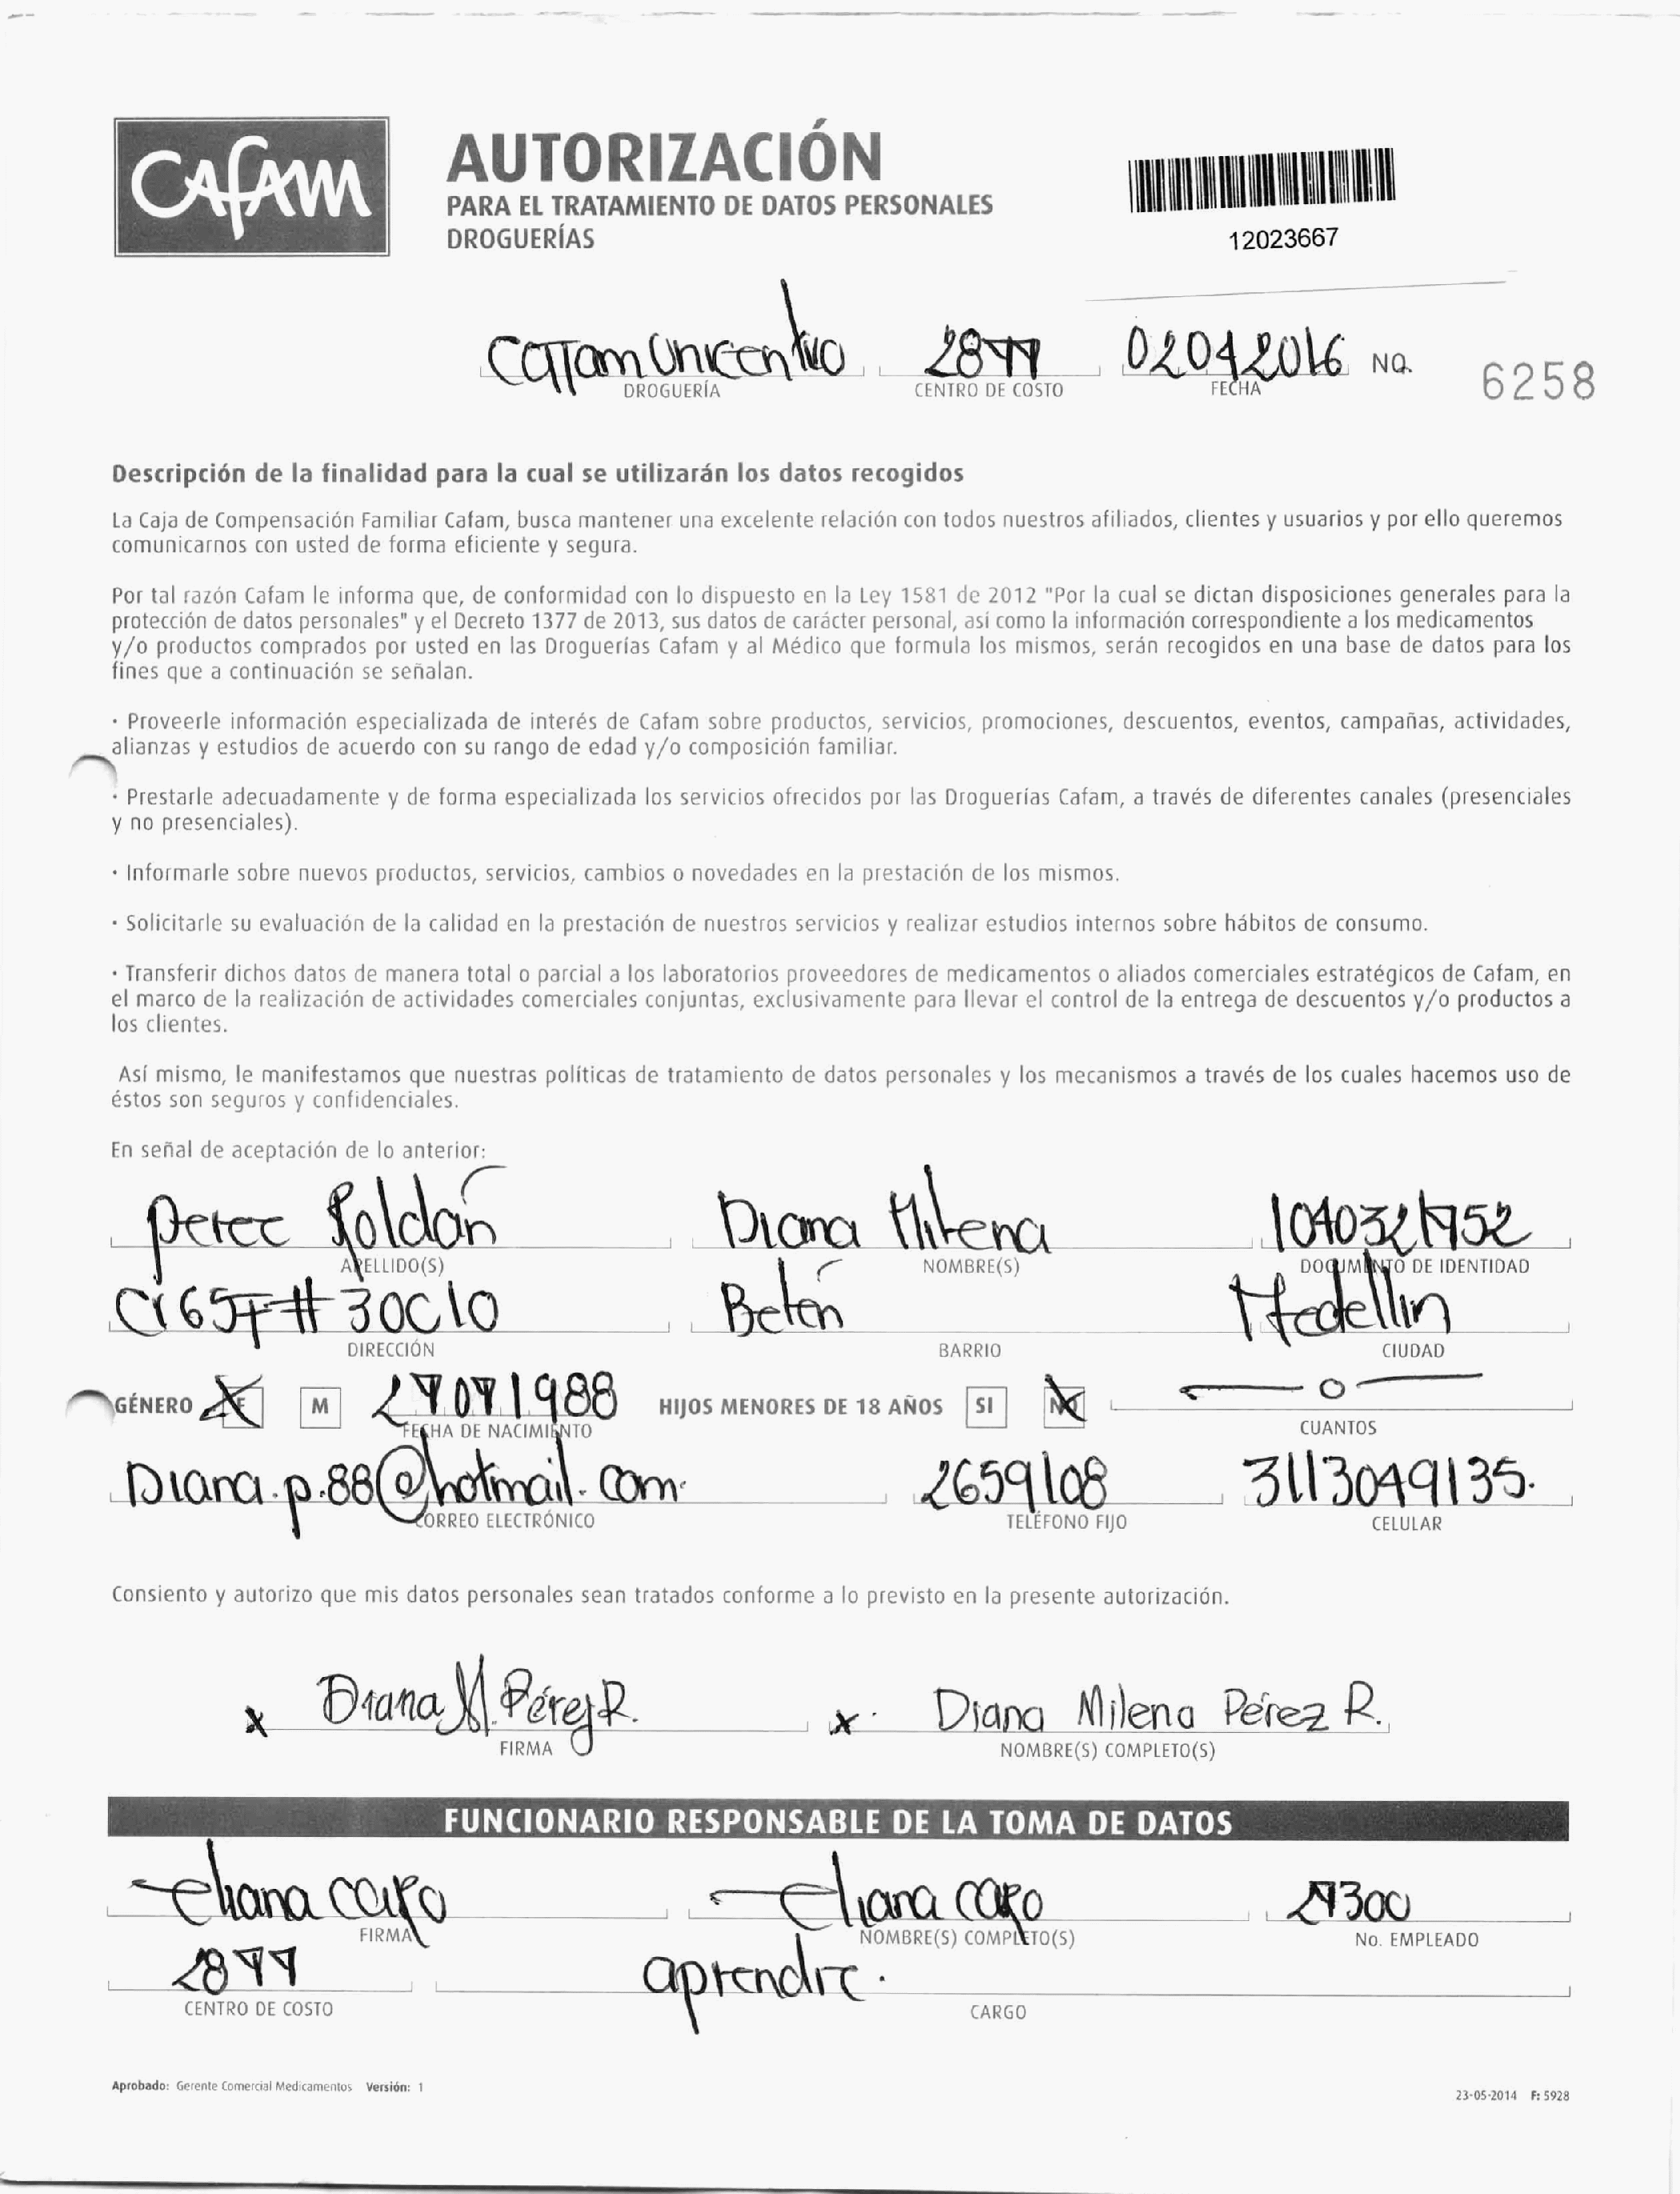 CAFAM
AUTORIZACIÓN
PARA EL TRATAMIENTO DE DATOS PERSONALES
DROGUERÍAS
12023667
Unicentro 2877 02042016 NO. 6258
DROGUERÍA CENTRO DE COSTO FECHA
Descripción de la finalidad para la cual se utilizarán los datos recogidos
La Caja de Compensación Familiar Cafam, busca mantener una excelente relación con todos nuestros afiliados, clientes y usuarios y por ello queremos
comunicarnos con usted de forma eficiente y segura.
Por tal razón Cafam le informa que, de conformidad con lo dispuesto en la Ley 1581 de 2012 "Por la cual se dictan disposiciones generales para la
protección de datos personales" y el Decreto 1377 de 2013, sus datos de carácter personal, así como la información correspondiente a los medicamentos
y/o productos comprados por usted en las Droguerías Cafam y al Médico que formula los mismos, serán recogidos en una base de datos para los
fines que a continuación se señalan.
· Proveerle información especializada de interés de Cafam sobre productos, servicios, promociones, descuentos, eventos, campañas, actividades,
alianzas y estudios de acuerdo con su rango de edad y/o composición familiar.
· Prestarle adecuadamente y de forma especializada los servicios ofrecidos por las Droguerías Cafam, a través de diferentes canales (presenciales
y no presenciales).
· Informarle sobre nuevos productos, servicios, cambios o novedades en la prestación de los mismos.
· Solicitarle su evaluación de la calidad en la prestación de nuestros servicios y realizar estudios internos sobre hábitos de consumo.
· Transferir dichos datos de manera total o parcial a los laboratorios proveedores de medicamentos o aliados comerciales estratégicos de Cafam, en
el marco de la realización de actividades comerciales conjuntas, exclusivamente para llevar el control de la entrega de descuentos y/o productos a
los clientes.
Así mismo, le manifestamos que nuestras políticas de tratamiento de datos personales y los mecanismos a través de los cuales hacemos uso de
éstos son seguros y confidenciales.
En señal de aceptación de lo anterior:
Perez Roldán Diana Milena
APELLIDO(S) NOMBRE(S) DOCUMENTO DE IDENTIDAD
# 30C10 Belén Medellin
DIRECCIÓN BARRIO CIUDAD
GÉNERO F M 27071988 HIJOS MENORES DE 18 AÑOS SI NO — 0 —
FECHA DE NACIMIENTO CUANTOS
Diana.p.88@hotmail.com 2659108 3113049135.
CORREO ELECTRÓNICO TELÉFONO FIJO CELULAR
Consiento y autorizo que mis datos personales sean tratados conforme a lo previsto en la presente autorización.
x Diana M. Pérez R. x Diana Milena Pérez R.
FIRMA NOMBRE(S) COMPLETO(S)
FUNCIONARIO RESPONSABLE DE LA TOMA DE DATOS
eliana caro eliana caro 27300
FIRMA NOMBRE(S) COMPLETO(S) No. EMPLEADO
2877 aprendiz.
CENTRO DE COSTO CARGO
Aprobado: Gerente Comercial Medicamentos Versión: 1
23-05-2014 F: 5928